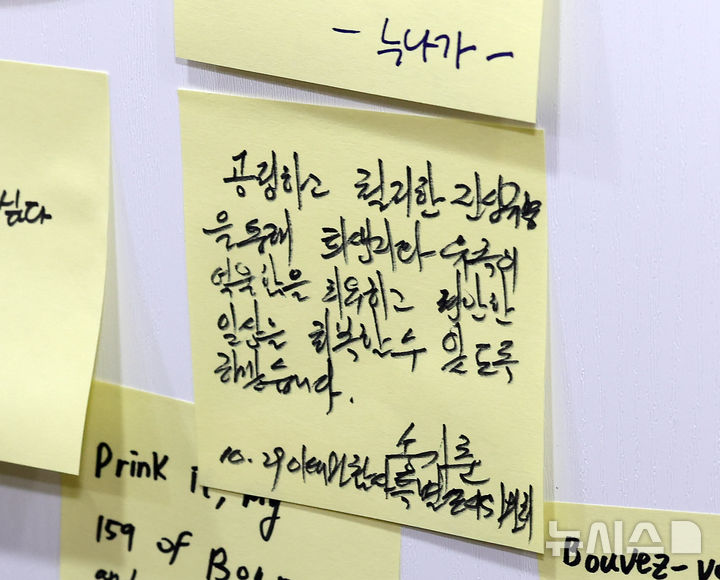 - 늑나가 -
심다
공정하고 철저한 진상규명
을 통해 희생자와 유족의
억울함을 위로하고 편안한
일상을 회복할 수 있도록
하겠습니다.
송기춘
10. 29 이태원참사 특별조사위원회
Prink it, my
159 of Bou
Bouvez-v
뉴시스